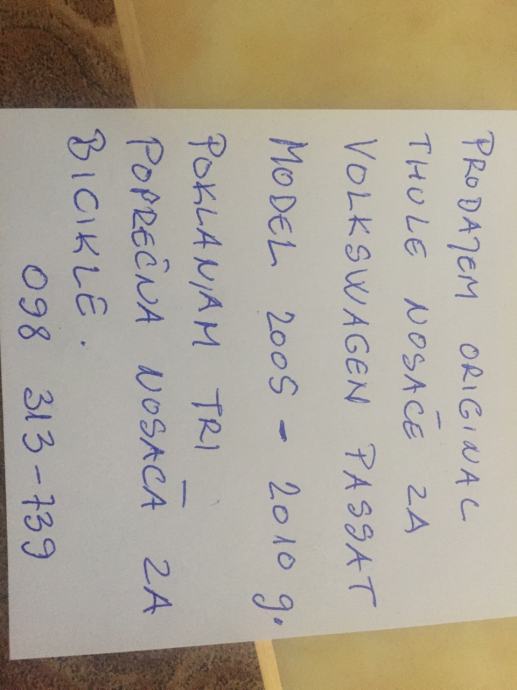 PRODAJEM ORIGINAL
THULE NOSAČE ZA
VOLKSWAGEN PASSAT
MODEL 2005 - 2010 g.
POKLANJAM TRI
POPREČNA NOSAČA ZA
BICIKLE.
098 313-739